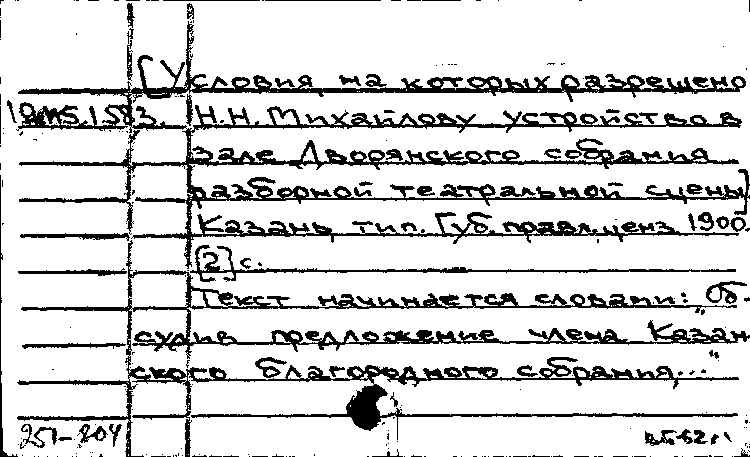 [Условия, на которых разрешено
Н.Н. Михайлову устройство в
зале Дворянского собрания
разборной театральной сцены]
Казань, тип. Губ. правл., ценз. 1900.
[2] с.
Текст начинается словами: "Об-
судив предложение члена Казан
ского благородного собрания,..."
251-804